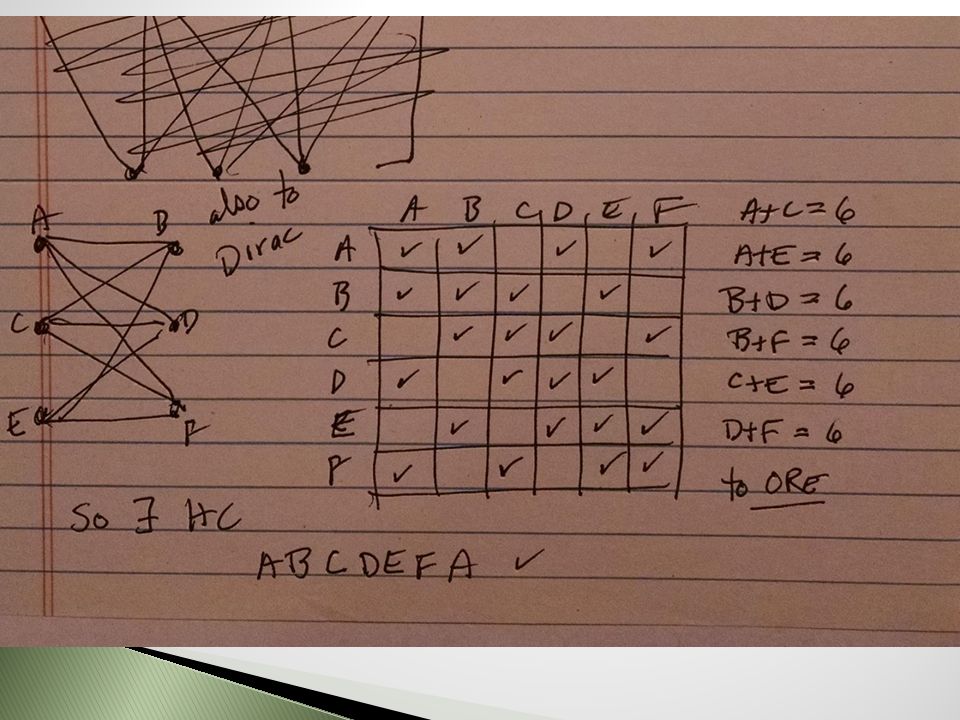 also to
Dirac
A B
C D
E F
A B C D E F
A ✓ ✓ ✓ ✓
B ✓ ✓ ✓ ✓
C ✓ ✓ ✓ ✓
D ✓ ✓ ✓ ✓
E ✓ ✓ ✓ ✓
F ✓ ✓ ✓ ✓
A+C = 6
A+E = 6
B+D = 6
B+F = 6
C+E = 6
D+F = 6
to ORE
So ∃ HC
A B C D E F A ✓